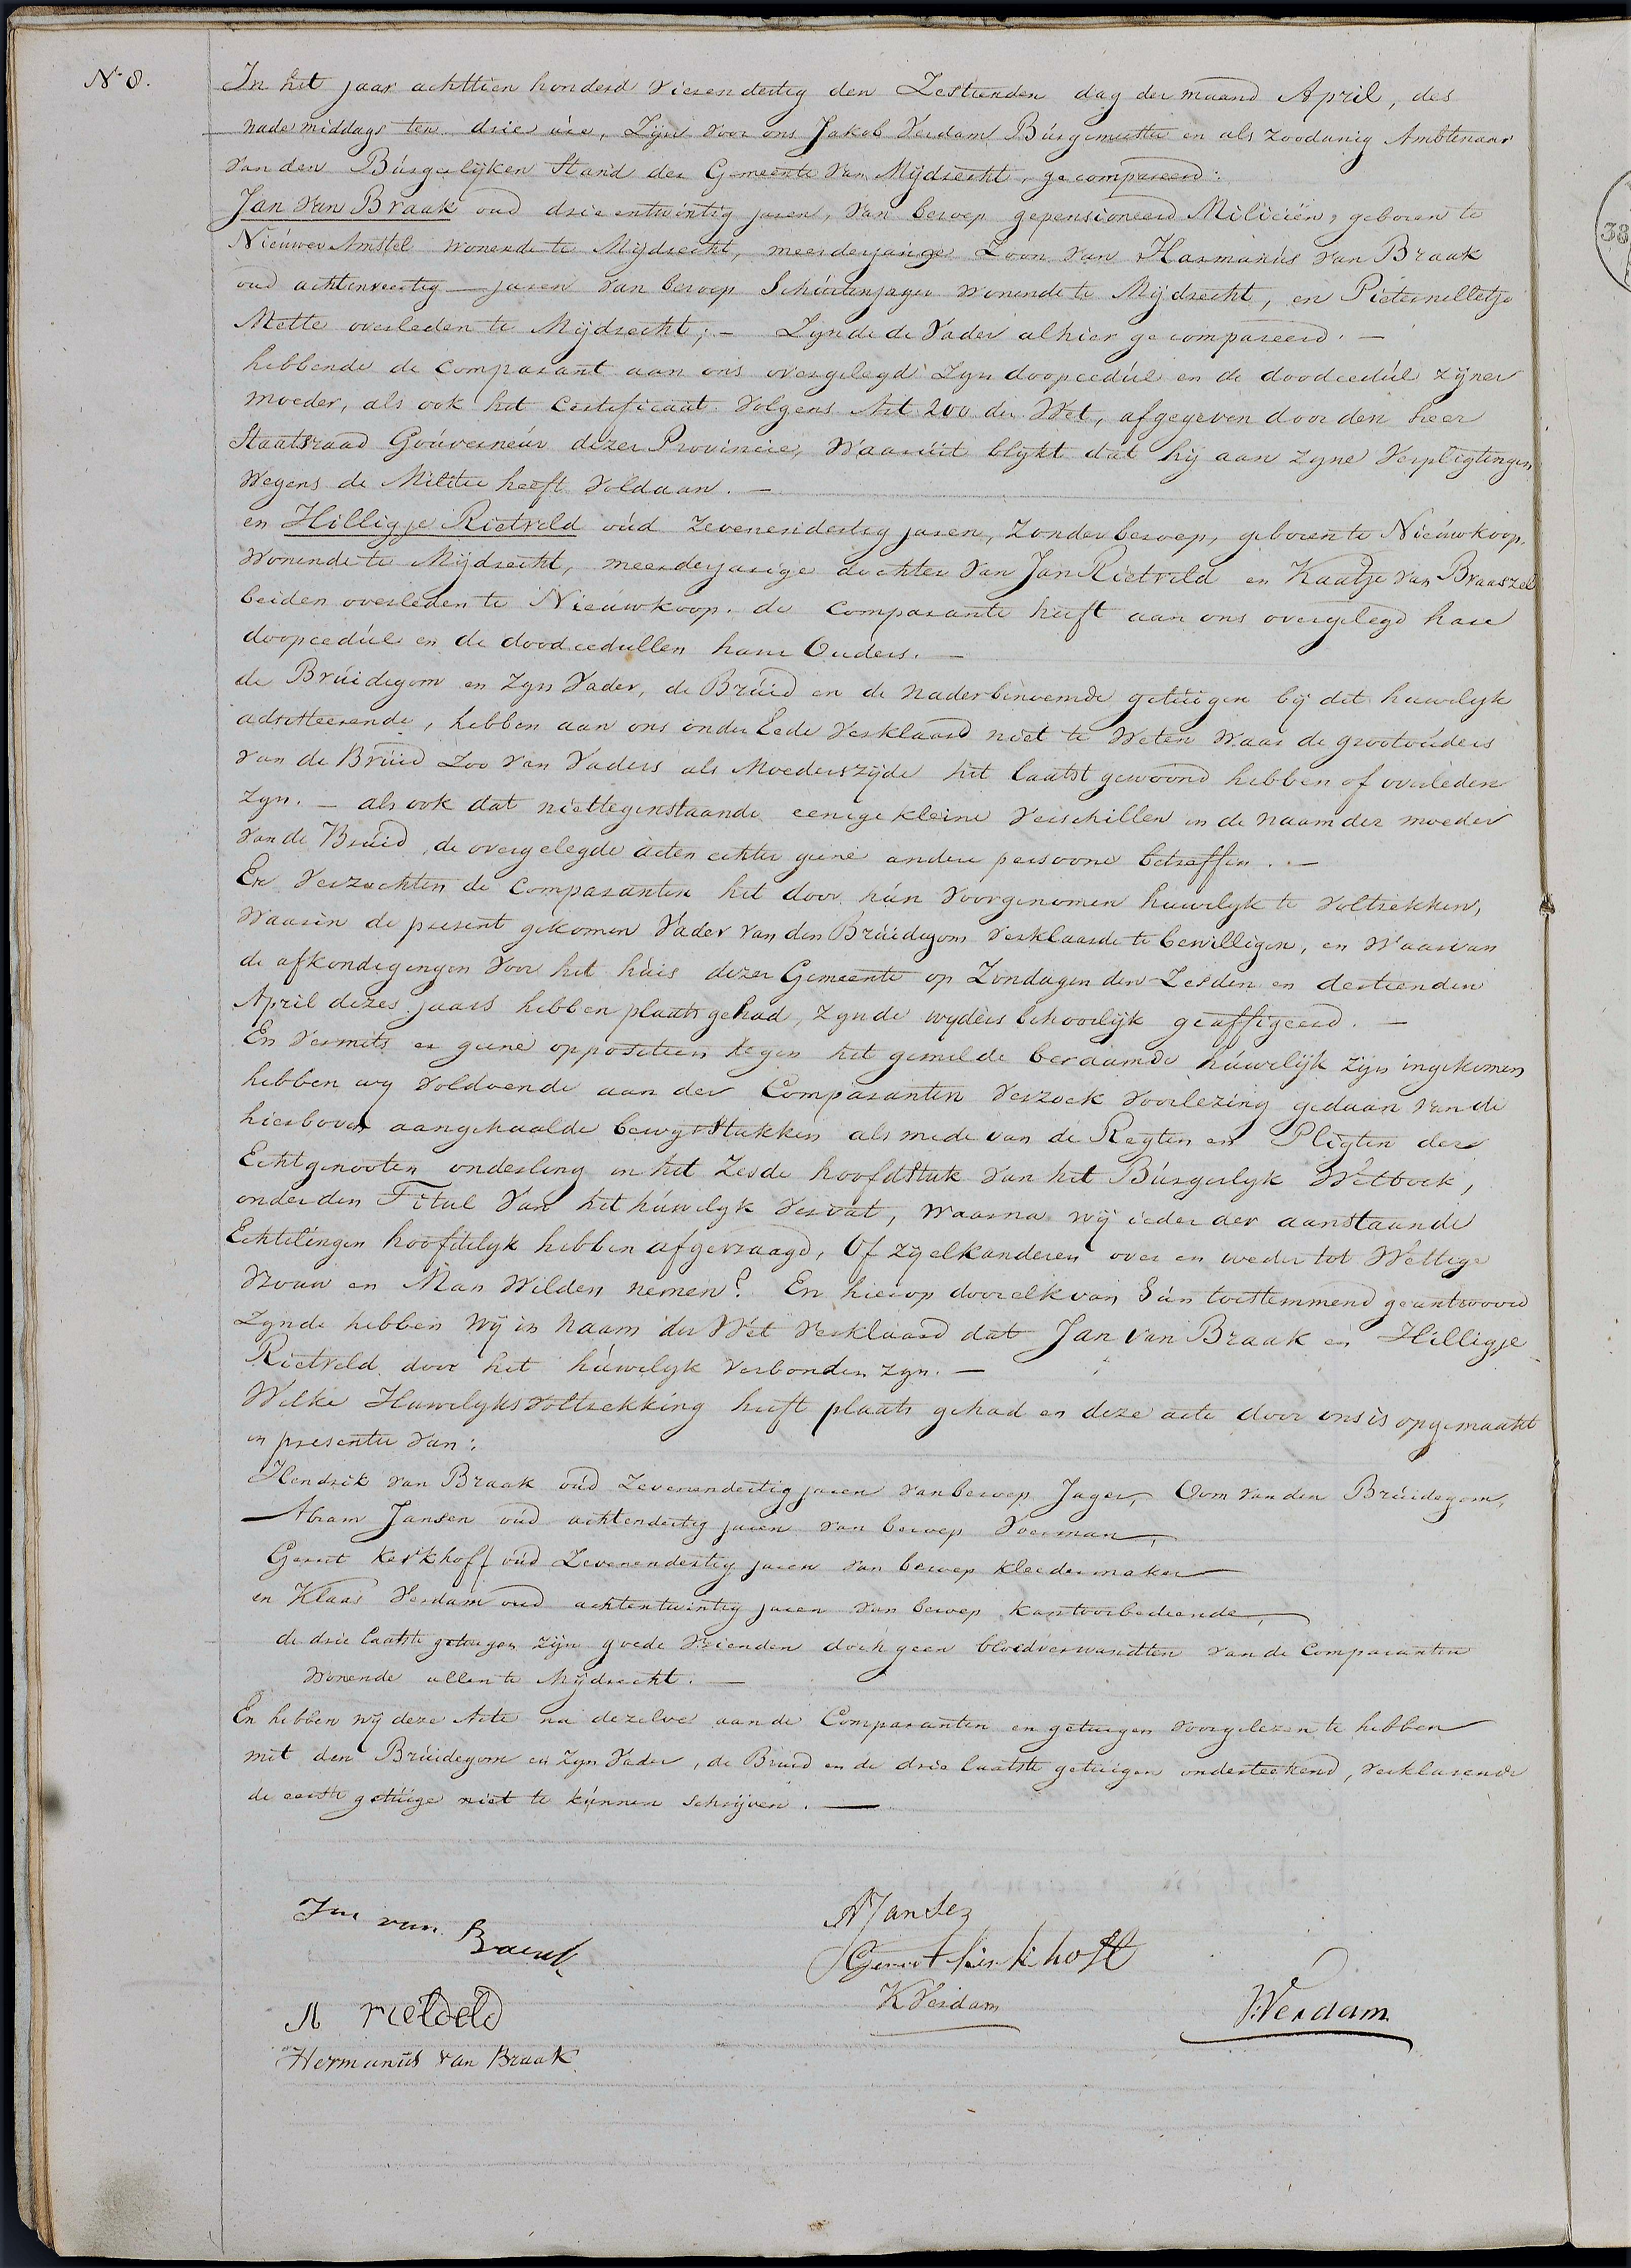 N 8.
In het jaar achttien honderd vierendertig den Zestienden dag der maand April, des
nademiddags ten drie ure, Zijn voor ons Jakob Verdam Burgemeester en als zoodanig Ambtenaar
van den Burgerlijken Stand der Gemeente van Mijdrecht, gecompareerd:
Jan van Braak oud drieentwintig jaren, van beroep gepensioneerd Miliciën, geboren te
Nieuwer Amstel wonende te Mijdrecht, meerderjarige Zoon van Harmanus van Braak
oud achtenveertig — jaren van beroep Schuitenjager wonende te Mijdrecht, en Pieternelletje
Mette overleden te Mijdrecht; — Zynde de Vader alhier gecompareerd. —
hebbende de Comparant aan ons overgelegd Zyn doopcedul en de doodcedul zijner
moeder, als ook het Certificaat volgens Art 200 der Wet, afgegeven door den heer
Staatsraad Gouverneur dezer Provincie, Waaruit blykt dat hij aan zyne Verpligtingen
Wegens de Militie heeft Voldaan. —
en Hilligje Rietveld oud Zevenendertig jaren, Zonder beroep, geboren te Nieuwkoop,
Wonende te Mijdrecht, meerderjarige dochter van Jan Rietveld en Kaatje van Braaszel
beiden overleden te Nieuwkoop. de Comparante heeft aan ons overgelegd hare
doopcedul en de doodcedullen harer Ouders. —
de Bruidegom en Zyn Vader, de Bruid en de naderbenoemde getuigen bij dit huwelyk
adsisteerende, hebben aan ons onder Eede verklaard niet te Weten Waar de grootouders
van de Bruid Zoo van Vaders als Moederszijde het laatst gewoond hebben of overleden
Zyn. — als ook dat niettegenstaande eenige kleine verschillen in de naam der moeder
van de Bruid, de overgelegde acten echter geene andere persoone betreffen. —
En Verzochten de Comparanten het door hun Voorgenomen huwelyk te Voltrekken,
Waarin de present gekomen Vader van den Bruidegom verklaarde te bewilligen, en Waarvan
de afkondigingen voor het huis dezer Gemeente op Zondagen den Zesden en dertienden
April dezes jaars hebben plaats gehad, Zynde wyders behoorlijk geaffigeerd. —
En Vermits er geene oppositien tegen het gemelde beraamde huwelijk zijn ingekomen
hebben wy Voldoende aan der Comparanten Verzoek Voorlezing gedaan van de
hierboven aangehaalde bewysstukken als mede van de Regten en Pligten der
Echtgenooten onderling in het Zesde hoofdstuk van het Burgerlyk Wetboek,
onder den Titul van het huwelyk vervat, waarna wij ieder der aanstaande
Echtelingen hoofdelyk hebben afgevraagd, Of zy elkanderen over en weder tot Wettige
Vrouw en Man Wilden nemen? En hierop door elk van hun toestemmend geantwoord
Zynde hebben Wy in Naam der Wet Verklaard dat Jan van Braak en Hilligje
Rietveld door het huwelyk verbonden zyn. —
Welke Huwelyks voltrekking heeft plaats gehad en deze acte door ons is opgemaakt
in presentie van:
Hendrik van Braak oud Zevenendertig jaren van beroep Jager, Oom van den Bruidegom,
Abram Jansen oud achtendertig jaren van beroep Voerman,
Gerrit Kerkhoff oud Zevenendertig jaren van beroep kleedermaker
en Klaas Verdam oud achtentwintig jaren van beroep kantoorbediende,
de drie laatste getuigen zijn goede Vrienden doch geen bloedverwandten van de Comparanten
Wonende allen te Mijdrecht. —
En hebben wij deze Acte na dezelve aan de Comparanten en getuigen voorgelezen te hebben
met den Bruidegom en Zyn Vader, de Bruid en de drie laatste getuigen onderteekend, verklarende
de eerste getuige niet te kunnen schrijven. —
Jan van Braak
A Jansen
Gerrit kerkhoff
H rietveld
K Verdam
J Verdam
Hermanus van Braak
38